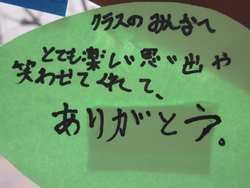 クラスのみんなへ
とても楽しい思い出や
笑わせてくれて、
ありがとう。